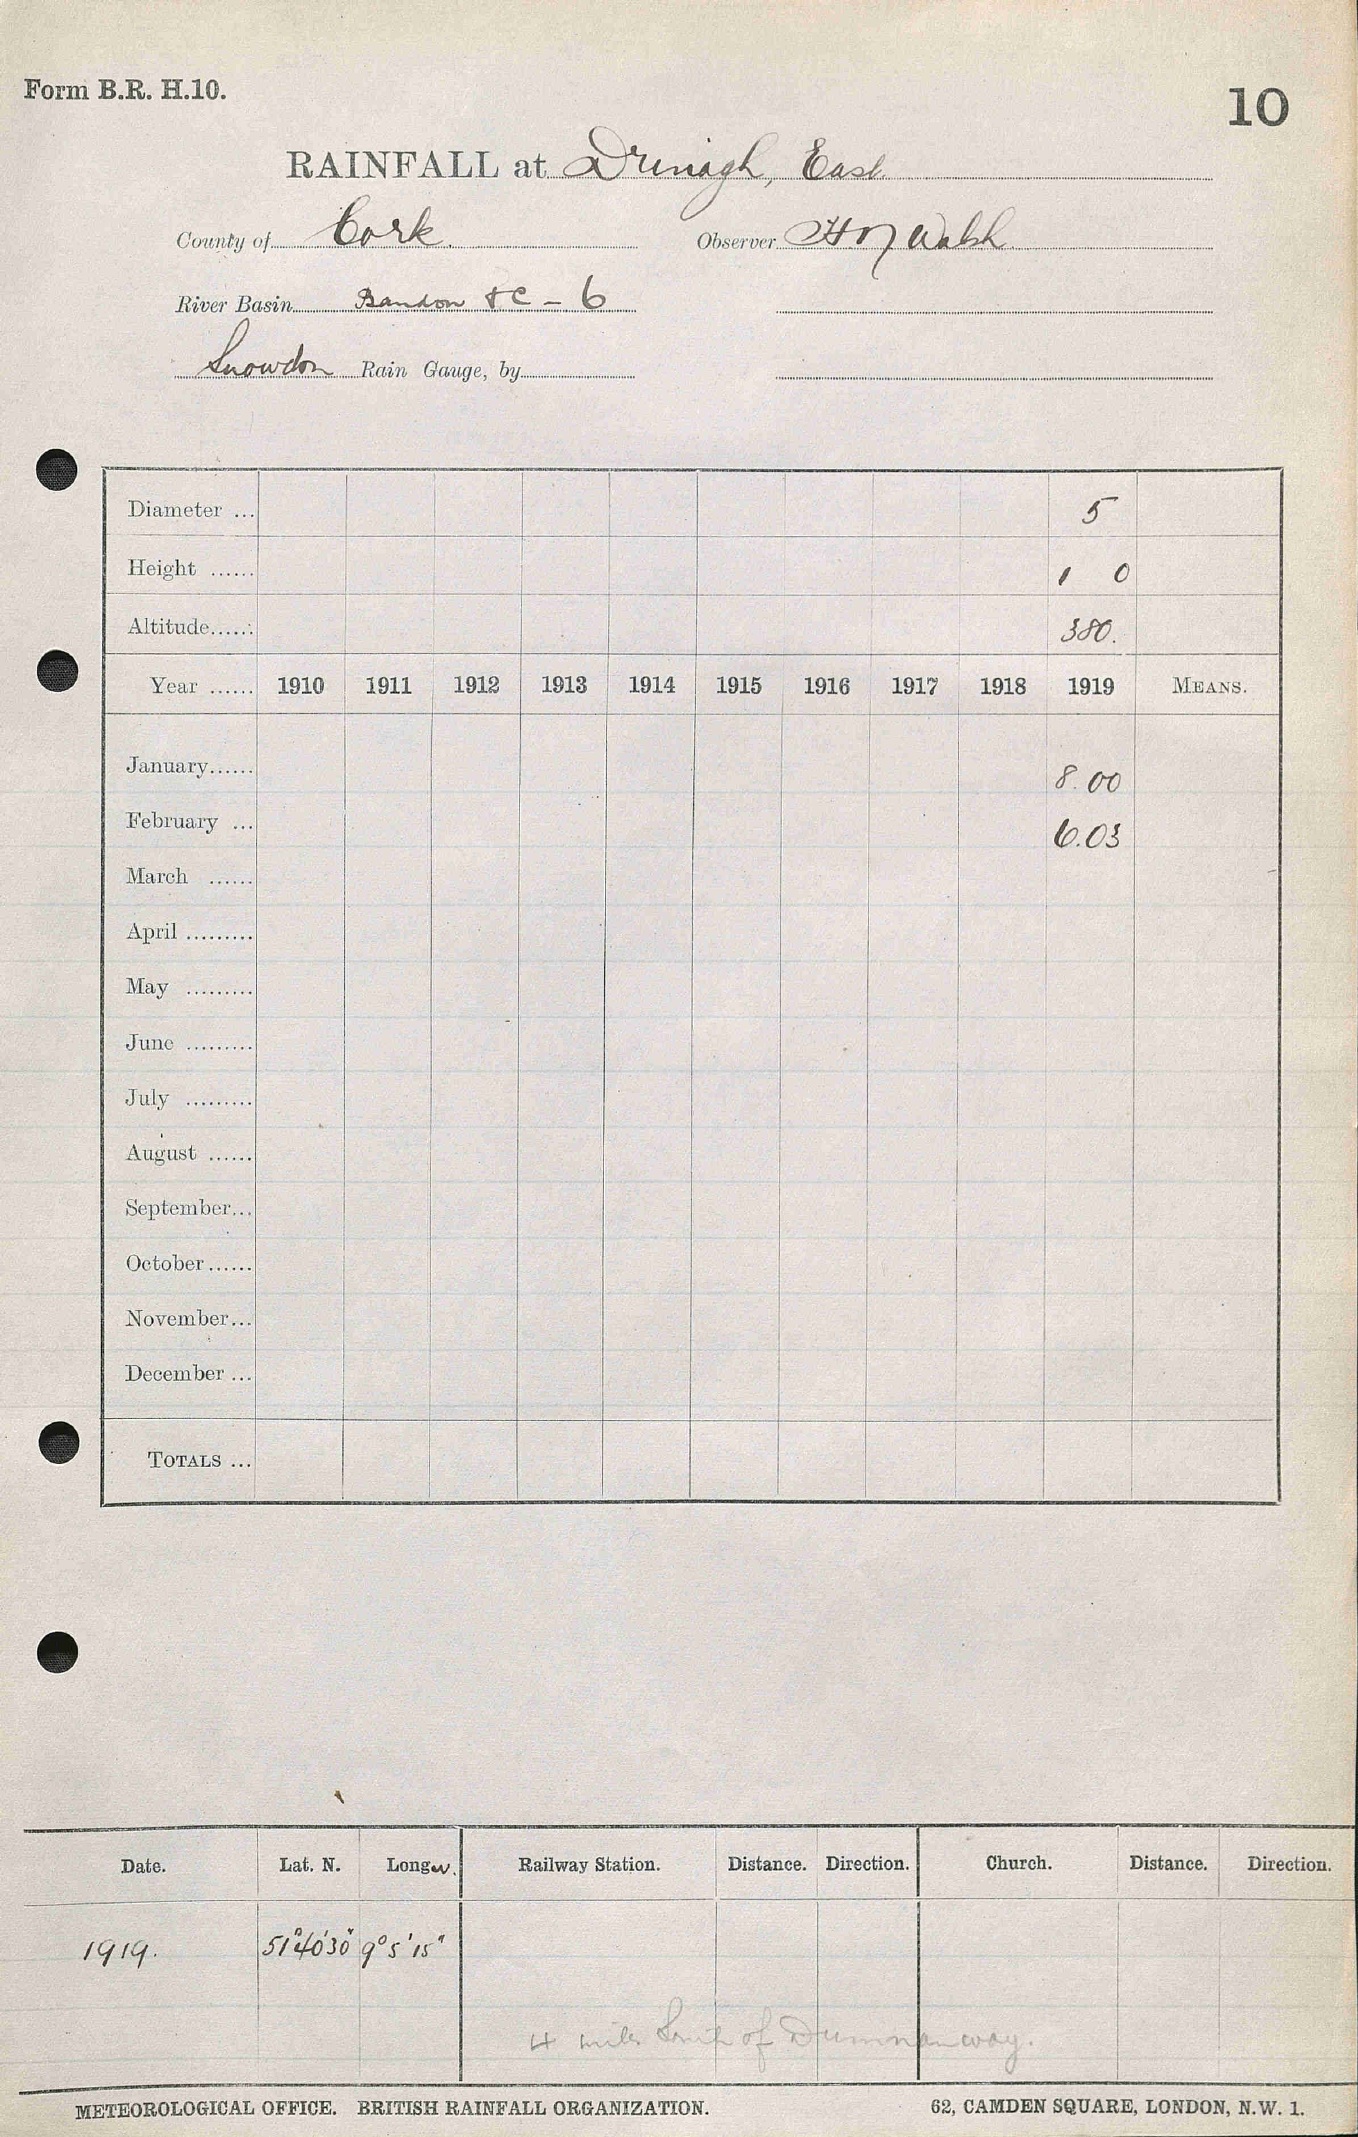 Form B.R. H.10.
10
RAINFALL at Drinagh, East.
County of Cork. Observer H M Walsh
River Basin Bandon &c – 6
Snowdon Rain Gauge, by
Diameter ... 5
Height ...... 1 0
Altitude...... 380.
Year ...... 1910 1911 1912 1913 1914 1915 1916 1917 1918 1919 MEANS.
January...... 8.00
February ... 6.03
March ......
April .........
May .........
June .........
July .........
August ......
September...
October......
November...
December ...
TOTALS ...
Date. Lat. N. Long W. Railway Station. Distance. Direction. Church. Distance. Direction.
1919. 51°40'30" 9°5'15"
4 miles South of Dunmanway.
METEOROLOGICAL OFFICE. BRITISH RAINFALL ORGANIZATION. 62, CAMDEN SQUARE, LONDON, N.W. 1.